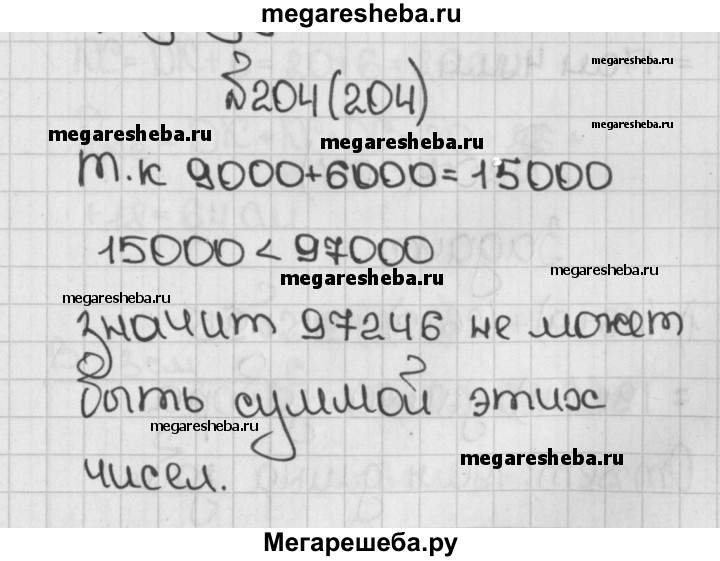 megaresheba.ru
№204(204)
megaresheba.ru
megaresheba.ru
megaresheba.ru
megaresheba.ru
т.к 9000+6000=15000
15000<97000
megaresheba.ru
megaresheba.ru
megaresheba.ru
значит 97246 не может
быть суммой этих
megaresheba.ru
megaresheba.ru
чисел.
Мегарешеба.ру